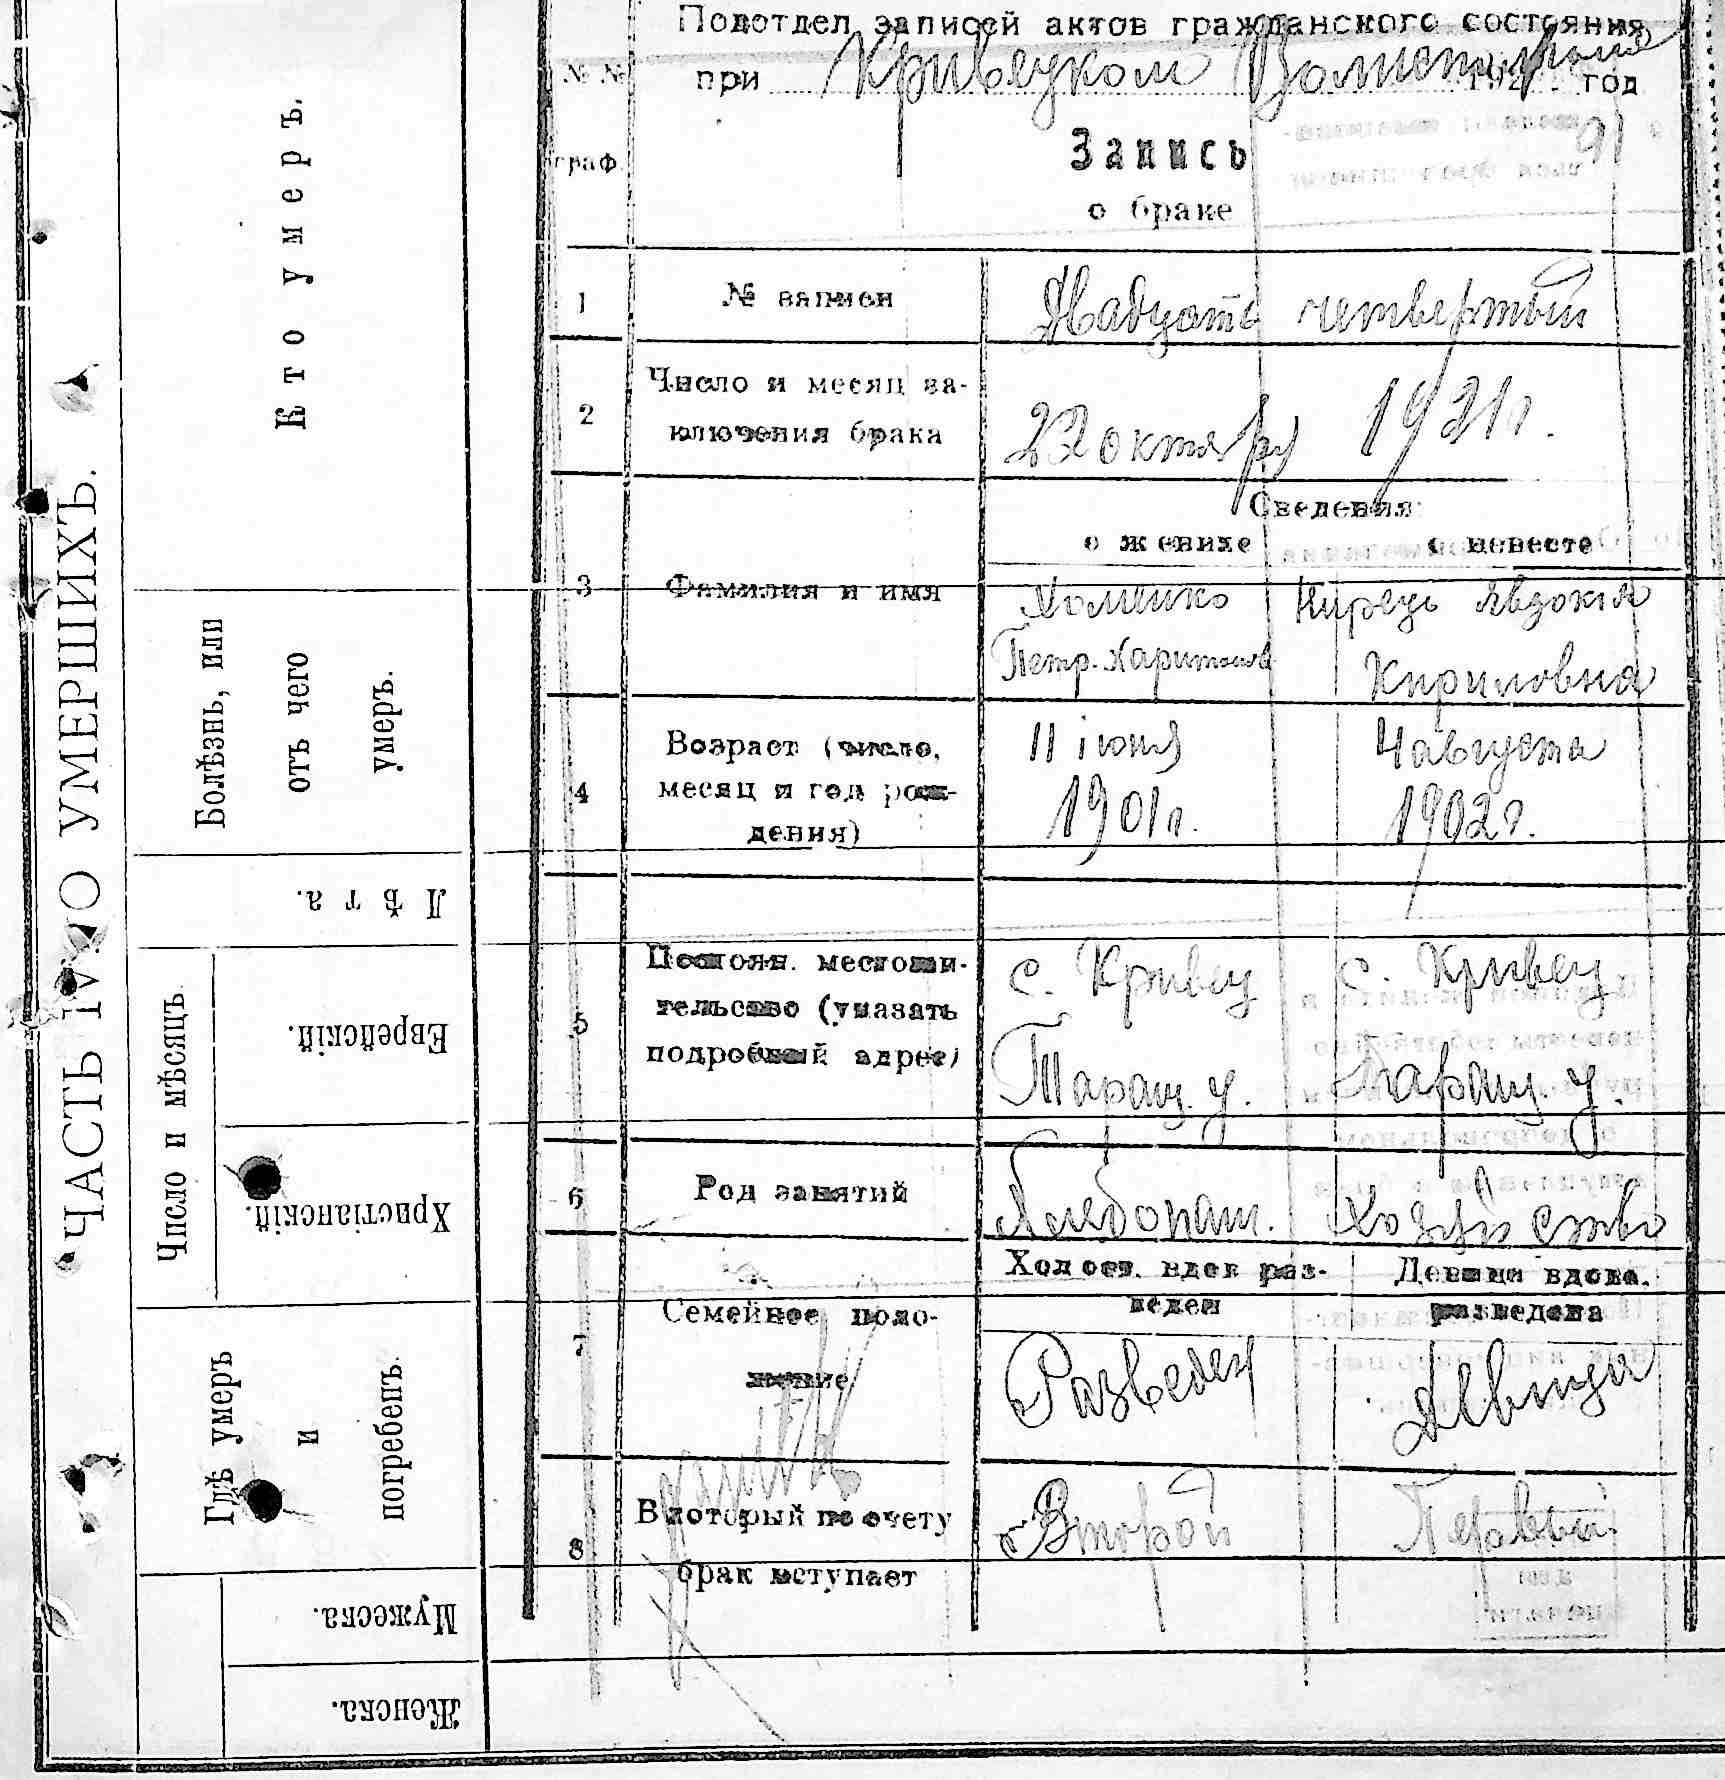 Подотдел записей актов гражданского состояния
при Кривецком 192 год
№ №
граф.
91
Запись
о браке
1 № записи Двадцать четвертый
2 Число и месяц за-
ключения брака
октября 1921 г.
Сведения:
о женихе о невесте
3 Фамилия и имя Хоменко Явдокія
Петр. Харитонов Кириловна
4 Возраст (число, 11 іюня 4 августа
месяц и год рож- 1901 г. 1902 г.
дения)
5 Постоян. местожи- с. Кривец с. Кривец
тельство (указать
подробный адрес) Таращ. у. Таращ. у.
6 Род занятий Хлебопаш. Хозяйство
Холост. вдов раз-
веден
Девица вдова.
разведена
7 Семейное поло-
жение
Разведен Девица
8 В который по счету Второй Первый
брак вступает
ЧАСТЬ IV. О УМЕРШИХЪ.
Кто умеръ.
Болѣзнь, или
отъ чего
умеръ.
Лѣта.
Число и мѣсяцъ
Еврейскій.
Христіанскій.
Гдѣ умеръ
и
погребенъ.
Мужеска.
Женска.